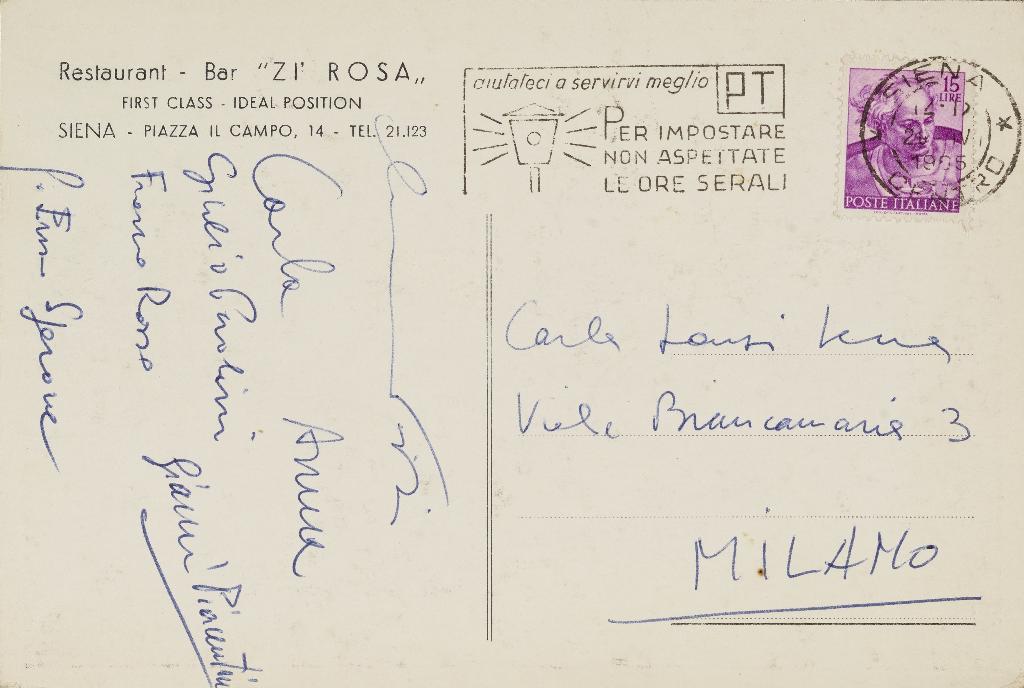 Restaurant - Bar "ZI' ROSA„
FIRST CLASS - IDEAL POSITION
SIENA - PIAZZA IL CAMPO, 14 - TEL. 21.123
aiutateci a servirvi meglio
PT
PER IMPOSTARE
NON ASPETTATE
LE ORE SERALI
SIENA
CENTRO *
15
LIRE
POSTE ITALIANE
Carla
Anna
Giulio Paolini
Gianni Piacentini
Franco Rosso
Sperone
Carla
Viale Biancamaria 3
MILANO